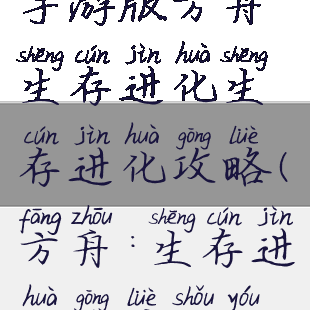 手游版方舟
shēng cún jìn huà shēng
生存进化生
cún jìn huà gōng lüè
存进化攻略(
fāng zhōu : shēng cún jìn
方舟:生存进
huà gōng lüè shǒu yóu